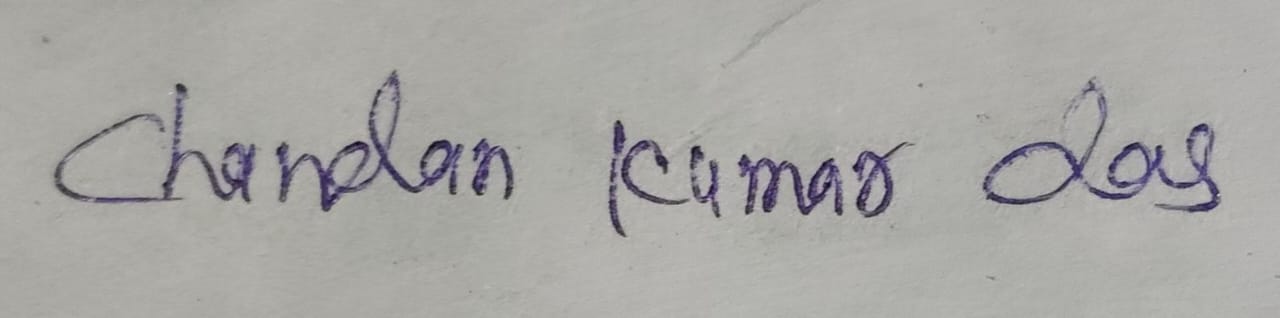 Chandan Kumar das